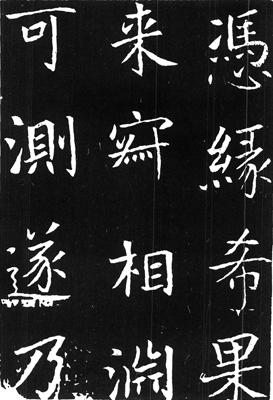 憑緣希果
来相淵
可測遂乃